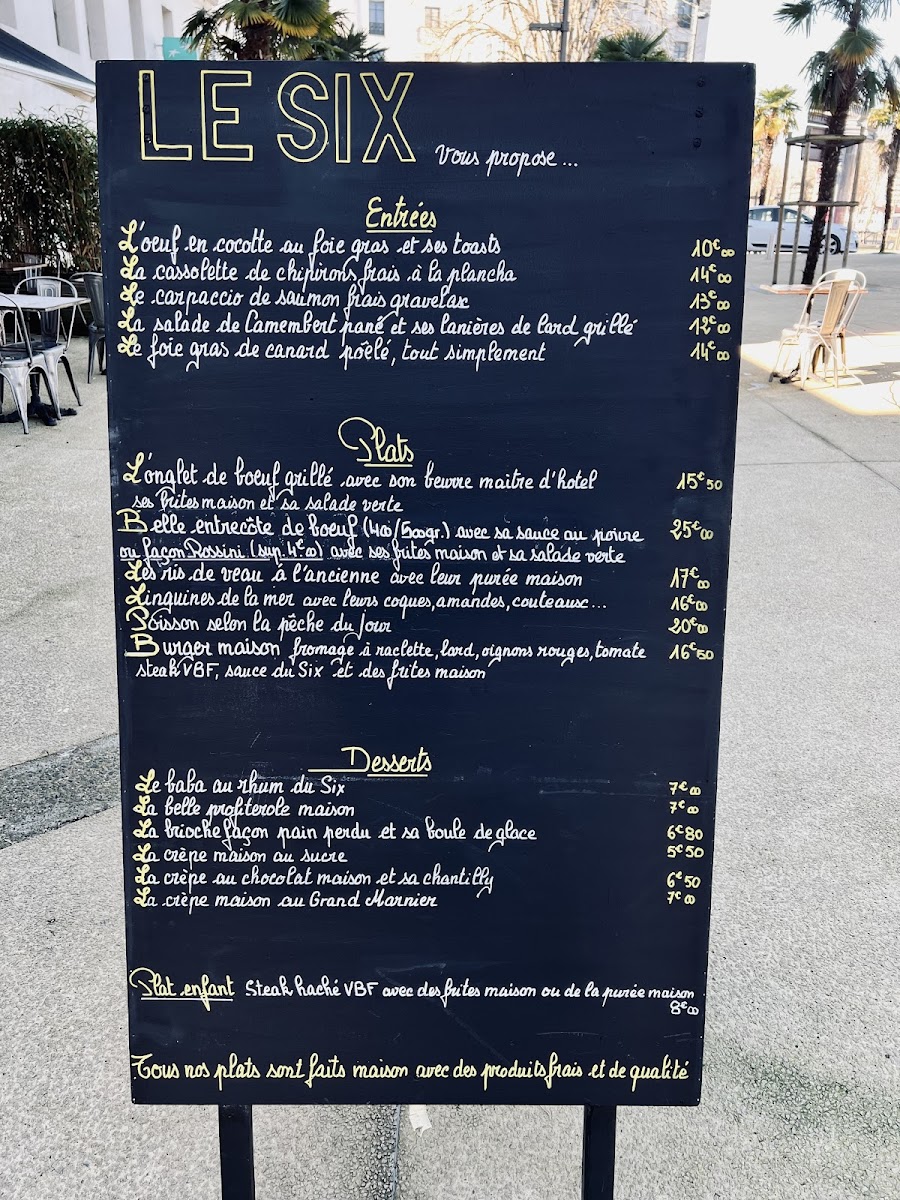 LE SIX Vous propose...
Entrées
L'oeuf en cocotte au foie gras et ses toasts 10€00
La cassolette de chipirons frais à la plancha 14€00
Le carpaccio de saumon frais gravelax 13€00
La salade de Camembert pané et ses lanières de lard grillé 12€00
Le foie gras de canard poêlé, tout simplement 14€00
Plats
L'onglet de boeuf grillé avec son beurre maitre d'hotel 15€50
ses frites maison et sa salade verte
Belle entrecôte de boeuf (400/500gr.) avec sa sauce au poivre 25€00
ou façon Rossini (sup. 4€00) avec ses frites maison et sa salade verte
Les ris de veau à l'ancienne avec leur purée maison 17€00
Linguines de la mer avec leurs coques, amandes, couteaux... 16€00
Poisson selon la pêche du jour 20€00
Burger maison fromage à raclette, lard, oignons rouges, tomate 16€50
steak VBF, sauce du Six et des frites maison
Desserts
Le baba au rhum du Six 7€00
La belle profiterole maison 7€00
La brioche façon pain perdu et sa boule de glace 6€80
La crèpe maison au sucre 5€50
La crèpe au chocolat maison et sa chantilly 6€50
La crèpe maison au Grand Marnier 7€00
Plat enfant Steak haché VBF avec des frites maison ou de la purée maison
8€00
Tous nos plats sont faits maison avec des produits frais et de qualité